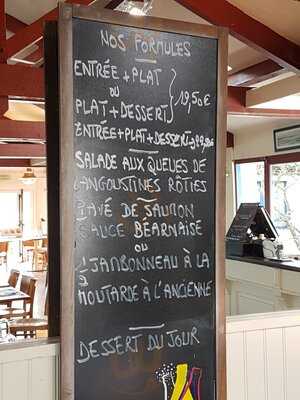 NOS FORMULES
ENTRÉE + PLAT
OU
PLAT + DESSERT
19,50€
ENTRÉE + PLAT + DESSERT
SALADE AUX QUEUES DE
LANGOUSTINES RÔTIES
PAVÉ DE SAUMON
SAUCE BÉARNAISE
OU
½ JAMBONNEAU À LA
MOUTARDE À L'ANCIENNE
DESSERT DU JOUR